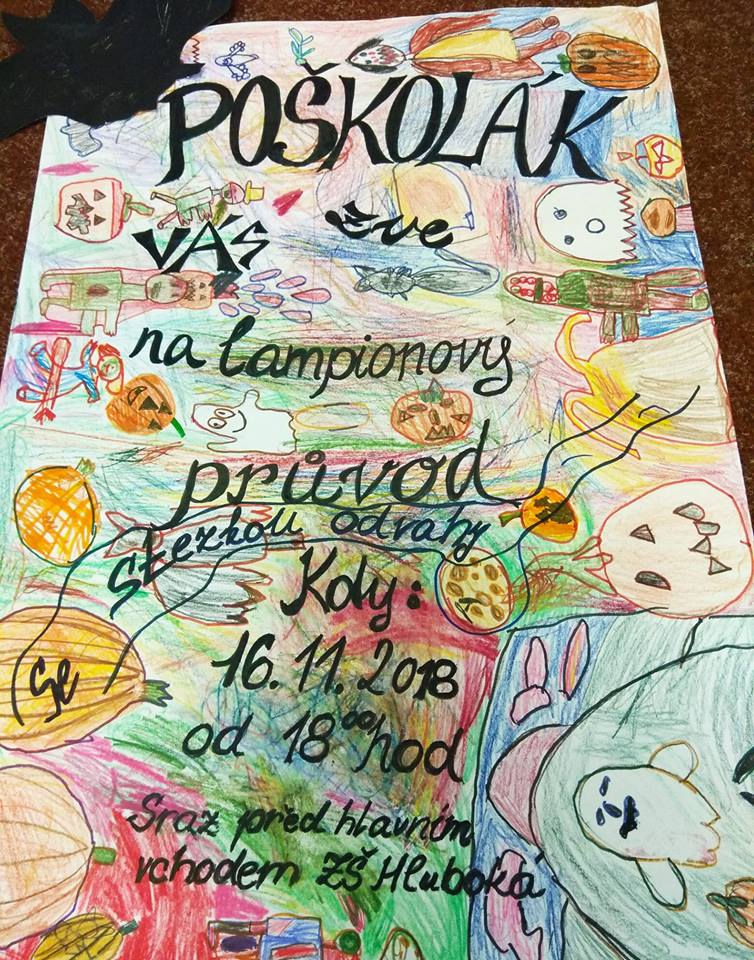 POŠKOLÁK
VÁS zve
na lampionový
průvod
se stezkou odvahy
Kdy:
16. 11. 2018
od 18⁰⁰ hod
Sraz před hlavním
vchodem ZŠ Hluboká